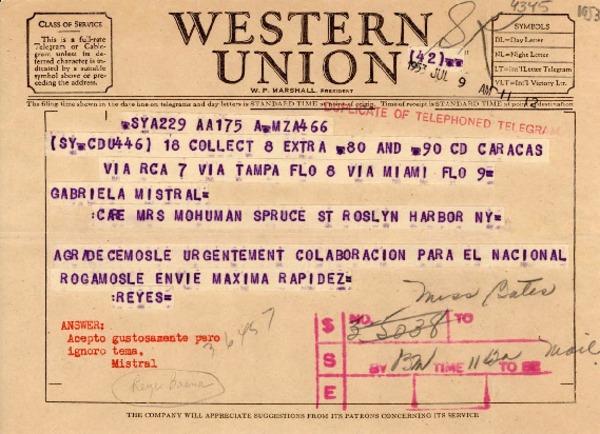 CLASS OF SERVICE
This is a full-rate
Telegram or Cable-
gram unless its de-
ferred character is in-
dicated by a suitable
symbol above or pre-
ceding the address.
WESTERN
UNION
W. P. MARSHALL, PRESIDENT
4345
1953
SYMBOLS
DL=Day Letter
NL=Night Letter
LT=Int'l Letter Telegram
VLT=Int'l Victory Ltr.
(42)
1953 JUL 9 AM 11
The filing time shown in the date line on telegrams and day letters is STANDARD TIME at point of origin. Time of receipt is STANDARD TIME at point of destination
DUPLICATE OF TELEPHONED TELEGRAM
SYA229 AA175 A MZA466
(SY CDU446) 18 COLLECT 8 EXTRA 80 AND 90 CD CARACAS
VIA RCA 7 VIA TAMPA FLO 8 VIA MIAMI FLO 9=
GABRIELA MISTRAL=
:CARE MRS MOHUMAN SPRUCE ST ROSLYN HARBOR NY=
AGRADECEMOSLE URGENTEMENT COLABORACION PARA EL NACIONAL
ROGAMOSLE ENVIE MAXIMA RAPIDEZ=
:REYES=
Miss Bates
ANSWER:
Acepto gustosamente pero
ignoro tema.
Mistral
36457
Reyes Baena
S S E
NO. TO
BY TIME TO BE
Mail
THE COMPANY WILL APPRECIATE SUGGESTIONS FROM ITS PATRONS CONCERNING ITS SERVICE